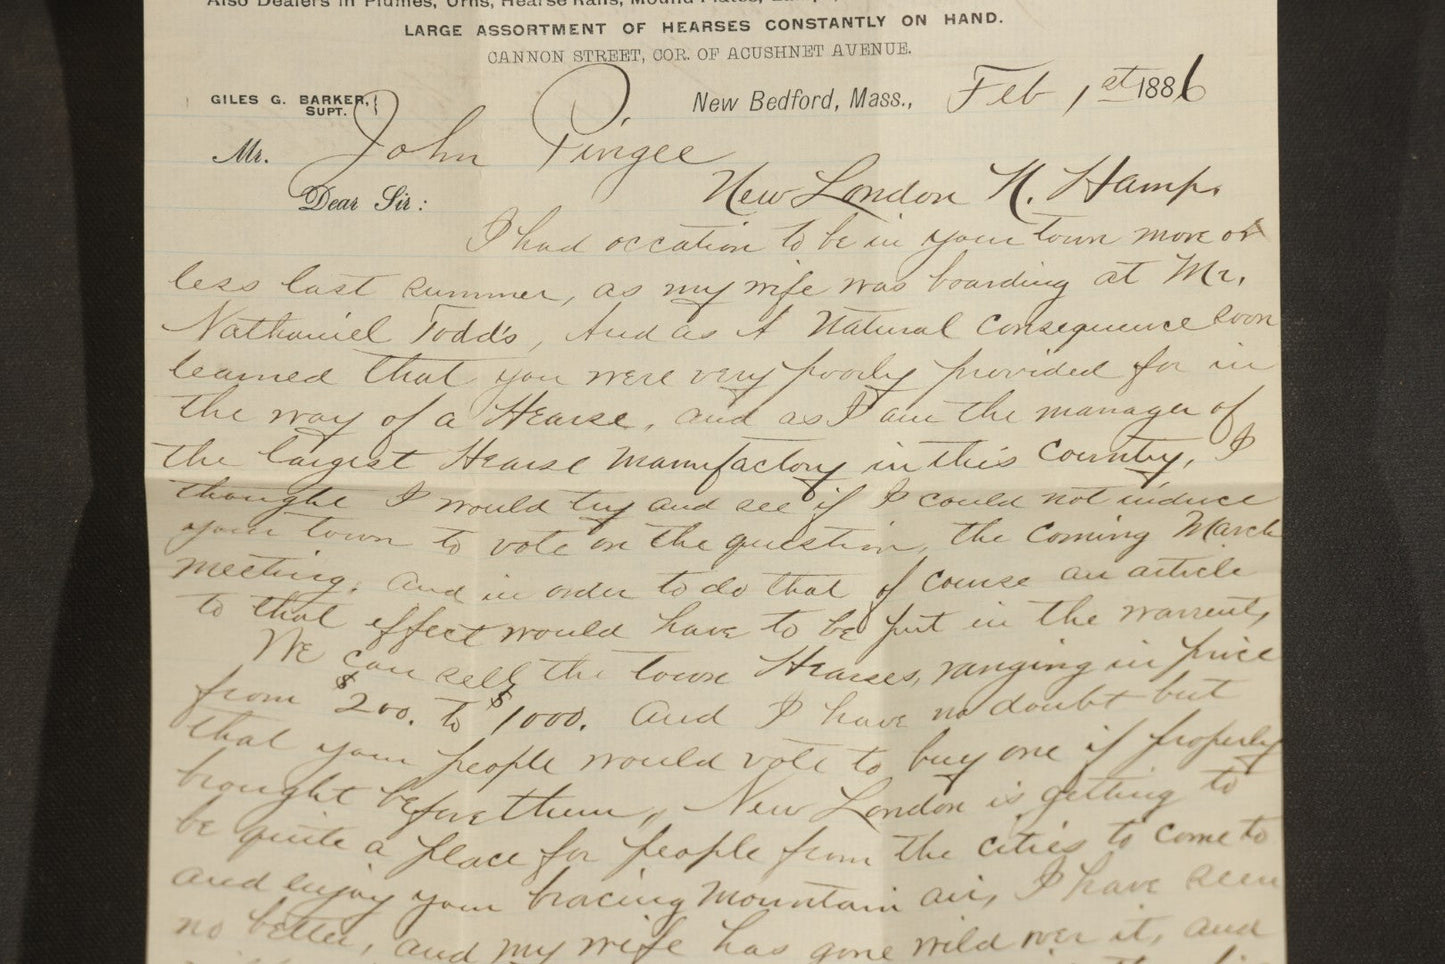 Also Dealers in Plumes, Urns, Hearse Rails, Mound Plates,
LARGE ASSORTMENT OF HEARSES CONSTANTLY ON HAND.
CANNON STREET, COR. OF ACUSHNET AVENUE.
GILES G. BARKER,
SUPT.
New Bedford, Mass., Feb 1st 1886
Mr. John Pingee
New London N. Hamp.
Dear Sir:
I had occation to be in your town more or
less last summer, as my wife was boarding at Mr.
Nathaniel Todd's, And as A Natural Consequence soon
learned that you were very poorly provided for in
the way of a Hearse, and as I am the manager of
the largest Hearse Manufactory in this Country, I
thought I would try and see if I could not induce
your town to vote on the question, the coming March
meeting, and in order to do that of course an article
to that effect would have to be put in the warrent,
We can sell the town Hearses, ranging in price
from $200. to $1000. And I have no doubt but
that your people would vote to buy one if properly
brought before them, New London is getting to
be quite a place for people from the cities to come to
and enjoy your bracing Mountain air, I have seen
no better, and my wife has gone wild over it, and